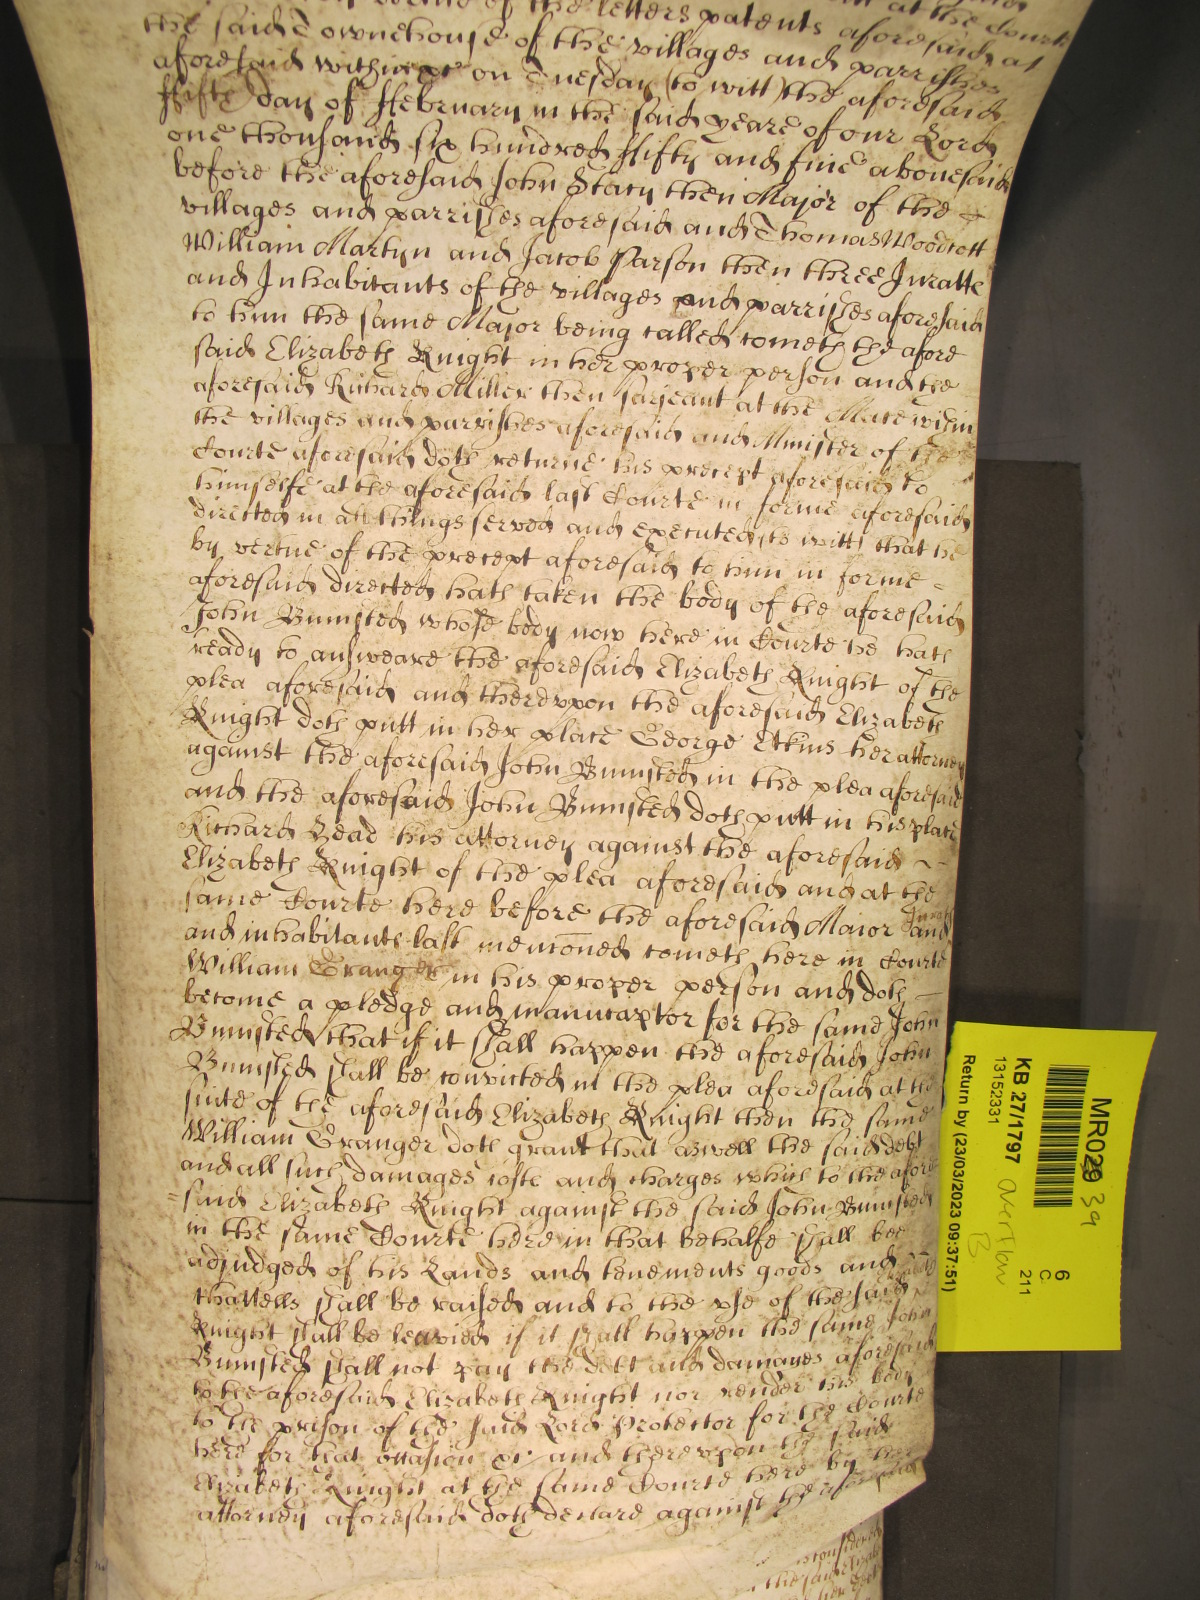 vertue of the letters patents aforesaid at the Courte
the said Townehouse of the villages and parrishes at
aforesaid within on Tuesday (to witt) the aforesaid
ffifte day of ffebruary in the said yeare of our Lord
one thousand six hundred ffifty and five abovesaid
before the aforesaid John Stacy then Major of the
villages and parrishes aforesaid and Thomas Woodcott
William Martyn and Jacob Parson then three Juratte
and Inhabitants of the villages and parrishes aforesaid
to him the same Major being called cometh the afore
said Elizabeth Knight in her proper person and the
aforesaid Richard Miller then sarjeant at the Mace within
the villages and parrishes aforesaid and Minister of the
Courte aforesaid doth returne his precept aforesaid to
himselfe at the aforesaid last Courte in forme aforesaid
directed in all things served and executed (to witt) that he
by vertue of the precept aforesaid to him in forme =
aforesaid directed hath taken the body of the aforesaid
John Bumsted whose body now here in Courte he hath
ready to answeare the aforesaid Elizabeth Knight of the
plea aforesaid and thereupon the aforesaid Elizabeth
Knight doth putt in her place George Etkins her attorney
against the aforesaid John Bumsted in the plea aforesaid
and the aforesaid John Bumsted doth putt in his place
Richard Head his attorney against the aforesaid
Elizabeth Knight of the plea aforesaid and at the
same Courte here before the aforesaid Maior Juratts
and inhabitants last mencōned cometh here in Courte
William Granger in his proper person and doth
become a pledge and manucaptor for the same John
Bumsted that if it shall happen the aforesaid John
Bumsted shall be convicted in the plea aforesaid at the
suite of the aforesaid Elizabeth Knight then the same
William Granger doth grant that aswell the said debt
and all such damages coste and charges which to the afore
=said Elizabeth Knight against the said John Bumsted
in the same Courte here in that behalfe shall bee
adjudged of his Lands and tenements goods and
chattells shall be raised and to the vse of the said
Knight shall be leavied if it shall happen the same John
Bumsted shall not pay the debt and damages aforesaid
to the aforesaid Elizabeth Knight nor render his body
to the prison of the said Lord Protector for the Courte
here for that occasion &c and thereupon the said
Elizabeth Knight at the same Courte here by her
attorney aforesaid doth declare against the aforesaid
considered
the said Elizab
MR029 39
KB 27/1797 overflow B
13152331
Return by (23/03/2023 09:37:51)
6
C.
211